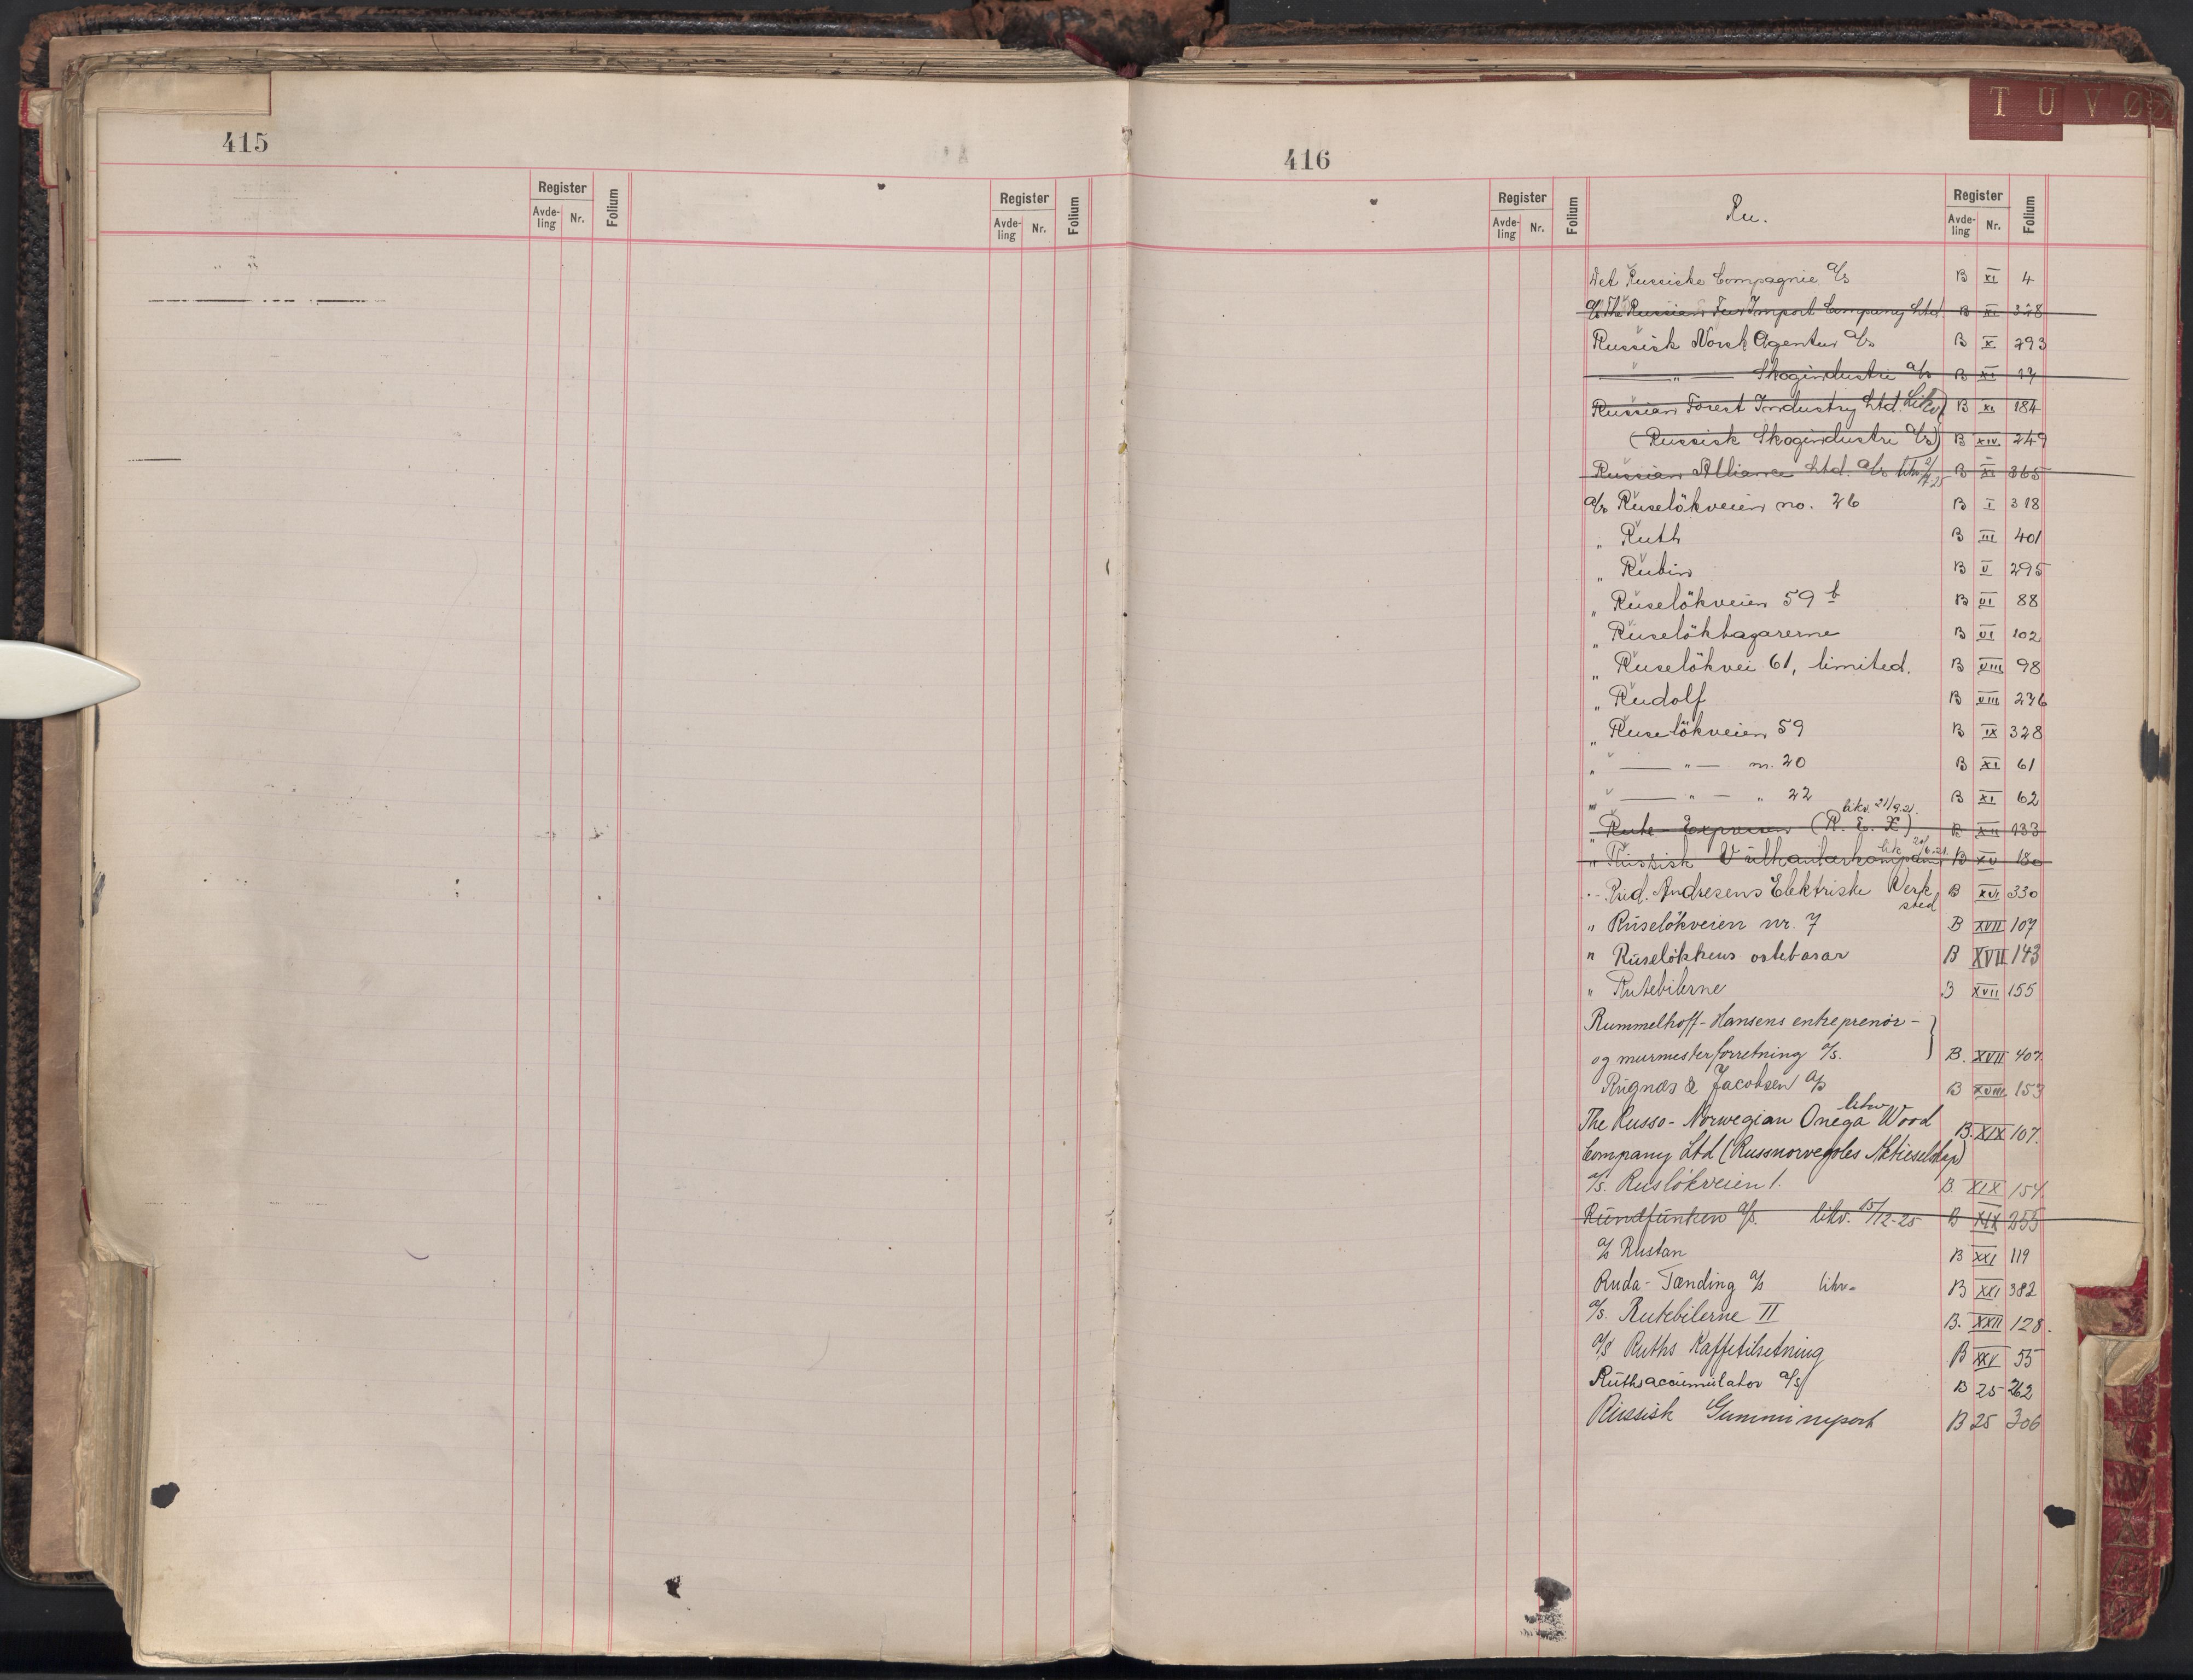 415
Register Folium Register Folium
Avde-ling Nr. Avde-ling Nr.
416
T U V Ø
Register Folium Ru. Register Folium
Avde-ling Nr. Avde-ling Nr.
Det Russiske Compagnie A/s B XI 4
A/s The Russian Fur Import Company Ltd. B XI 328
Russisk Norsk Agentur A/s B X 293
— " — Skogindustri A/s B XI 17
Russian Forest Industry Ltd. Likv. B XI 184
(Russisk Skogindustri A/s) B XIV 249
Russian Alliance Ltd. A/s likv. B XI 365
A/s Ruselökveien no. 26 B I 318
" Ruth B III 401
" Rubin B V 295
" Ruselökveien 59 b B VI 88
" Ruselökbazarerne B VI 102
" Ruselökvei 61, limited. B VIII 98
" Rudolf B VIII 276
" Ruselökveien 59 B IX 328
" — " — nr. 20 B XI 61
" — " — " 22 B XI 62
" Rute-Expressen (R. E. X) likv. 21/9.21. B XII 133
" Russisk Vulkanlærkompani lik. 20/6.21. B XV 180
" Rud. Andresens Elektriske Verksted B XVI 330
" Ruselökveien nr. 7 B XVII 107
" Ruselökkens ostebasar B XVII 143
" Rutebilerne B XVII 155
Rummelhoff-Hansens entreprenör-
og murmesterforretning A/s. B. XVII 407.
Rugnæs & Jacobsen A/s B XVIII 153
The Russo-Norwegian Onega Wood likv. B. XIX 107.
Company Ltd (Russnorvegoles Aktieselskap)
A/s. Ruslökveien 1. B. XIX 154.
Rundfunken A/s. likv. 15/12-25 B XIX 255
A/s Rustan B XXI 119
Ruda-Tænding A/s likv. B XXI 382
A/s. Rutebilerne II B. XXII 128.
A/s Ruths Kaffetilsetning B XXV 55
Ruthsaccumulator A/s B 25 262
Russisk Gummiimport B 25 306